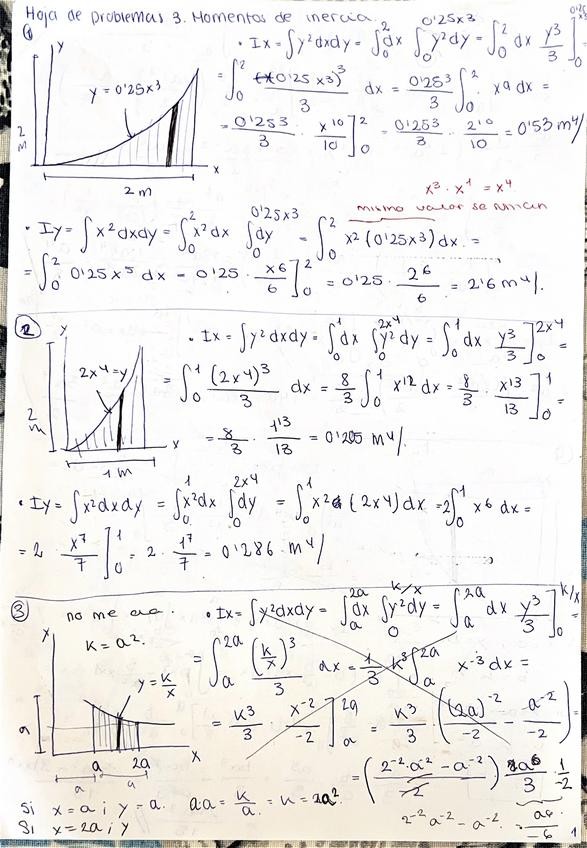 Hoja de Problemas 3. Momentos de inercia.
①
y
y = 0'25x3
2 m
2 m
x
• Ix = ∫y² dxdy = ∫₀² dx ∫₀^0'25x3 y² dy = ∫₀² dx y³/3 ]₀^0'25
= ∫₀² (0'25x3)³/3 dx = 0'25³/3 ∫₀² x9 dx =
= 0'253/3 · x10/10 ]₀² = 0'253/3 · 2^10/10 = 0'53 m4/
x³ · x¹ = x4
mismo valor se suman
• Iy = ∫x² dxdy = ∫₀² x² dx ∫₀^0'25x3 dy = ∫₀² x² (0'25x3) dx =
= ∫₀² 0'25 x5 dx = 0'25 · x6/6 ]₀² = 0'25 · 2^6/6 = 2'6 m4/.
②
y
2x4 = y
2 m
1 m
x
• Ix = ∫y² dxdy = ∫₀¹ dx ∫₀^2x4 y² dy = ∫₀¹ dx y³/3 ]₀^2x4 =
= ∫₀¹ (2x4)³/3 dx = 8/3 ∫₀¹ x12 dx = 8/3 · x13/13 ]₀¹ =
= 8/3 · 1^13/13 = 0'205 m4/.
• Iy = ∫x² dxdy = ∫₀¹ x² dx ∫₀^2x4 dy = ∫₀¹ x² (2x4) dx = 2∫₀¹ x6 dx =
= 2 · x7/7 ]₀¹ = 2 · 1^7/7 = 0'286 · m4/
③
no me
x
k = a²
y = k/x
a
a
2a
x
a
a
• Ix = ∫y² dxdy = ∫ₐ^2a dx ∫₀^k/x y² dy = ∫ₐ^2a dx y³/3 ]₀^k/x =
= ∫ₐ^2a (k/x)³/3 dx = 1/3 k³ ∫ₐ^2a x-3 dx =
= k³/3 · x-2/-2 ]ₐ^2a = k³/3 · ((2a)-2/-2 - a-2/-2) =
= (2-2·a2 - a-2/2) a6/3 · 1/-2
Si x = a ; y = a. a·a = k/a = k = a²
Si x = 2a ; y
2-2 a-2 - a-2 · a6/-6
1